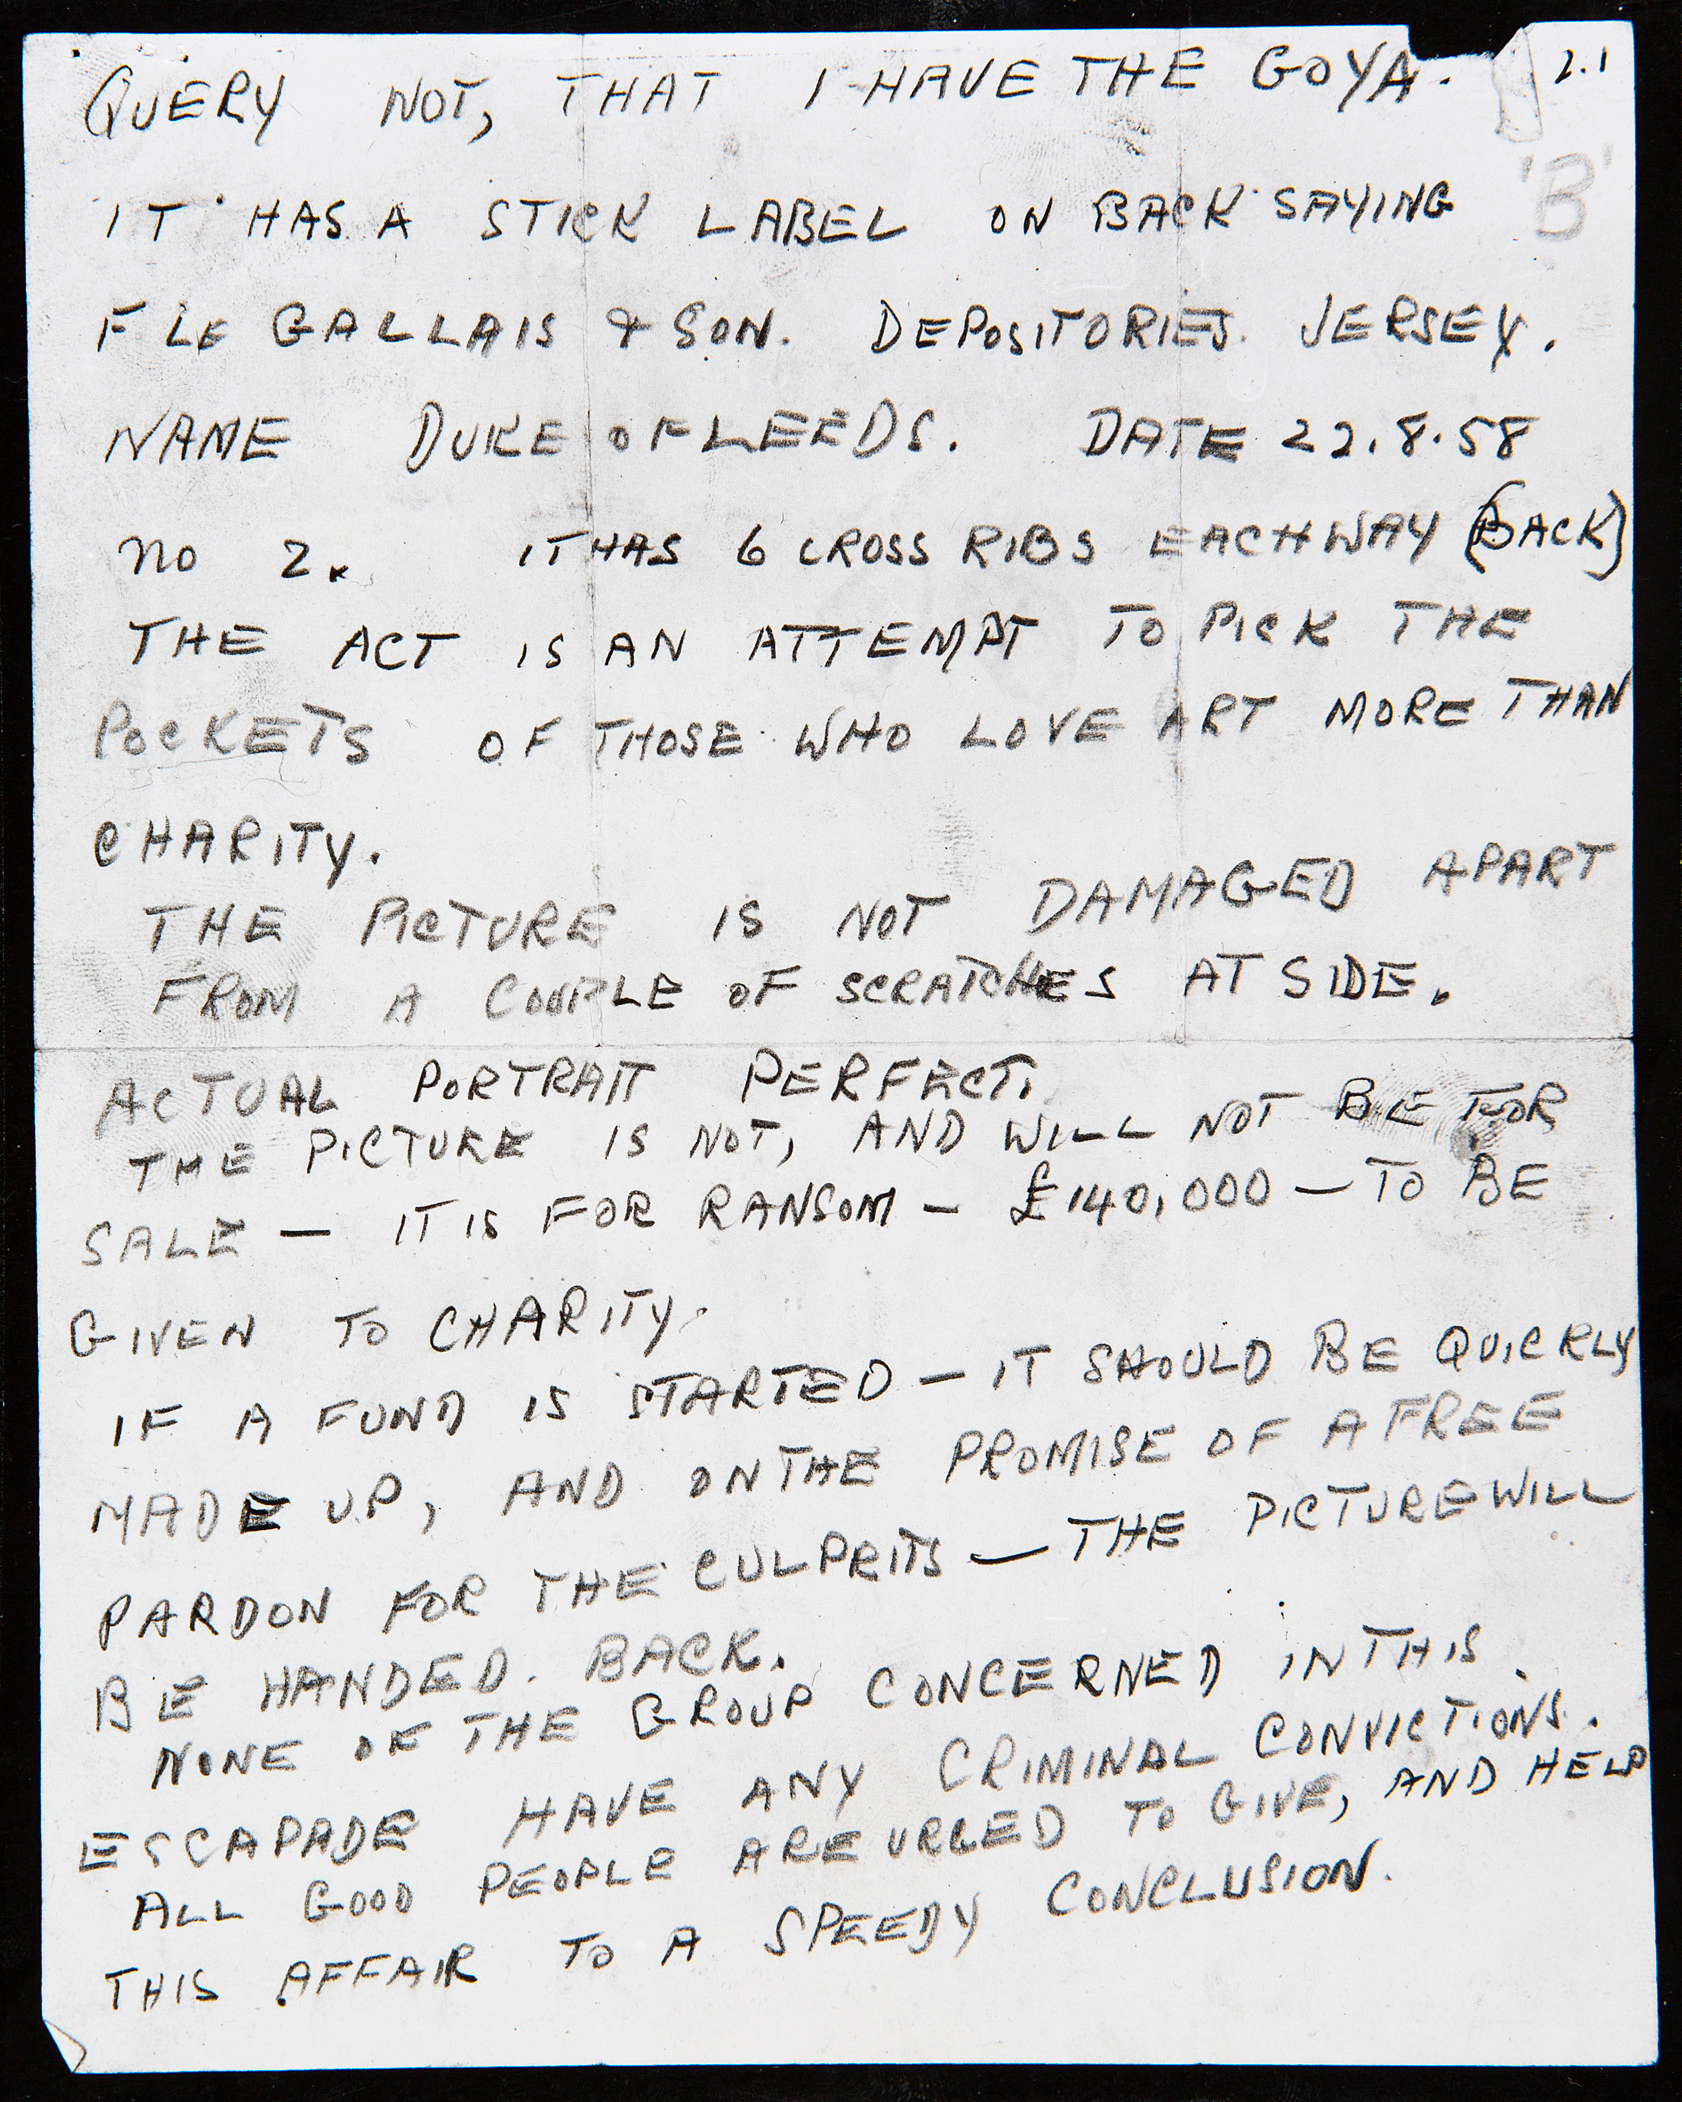 QUERY NOT, THAT I HAVE THE GOYA.
2.1
'B'
IT HAS A STICK LABEL ON BACK SAYING
F LE GALLAIS & SON. DEPOSITORIES. JERSEY.
NAME DUKE OF LEEDS. DATE 22.8.58
NO 2. IT HAS 6 CROSS RIBS EACH WAY (BACK)
THE ACT IS AN ATTEMPT TO PICK THE
POCKETS OF THOSE WHO LOVE ART MORE THAN
CHARITY.
THE PICTURE IS NOT DAMAGED APART
FROM A COUPLE OF SCRATCHES AT SIDE.
ACTUAL PORTRAIT PERFECT.
THE PICTURE IS NOT, AND WILL NOT BE FOR
SALE — IT IS FOR RANSOM — £140,000 — TO BE
GIVEN TO CHARITY.
IF A FUND IS STARTED — IT SHOULD BE QUICKLY
MADE UP, AND ON THE PROMISE OF A FREE
PARDON FOR THE CULPRITS — THE PICTURE WILL
BE HANDED. BACK.
NONE OF THE GROUP CONCERNED IN THIS
ESCAPADE HAVE ANY CRIMINAL CONVICTIONS.
ALL GOOD PEOPLE ARE URGED TO GIVE, AND HELP
THIS AFFAIR TO A SPEEDY CONCLUSION.